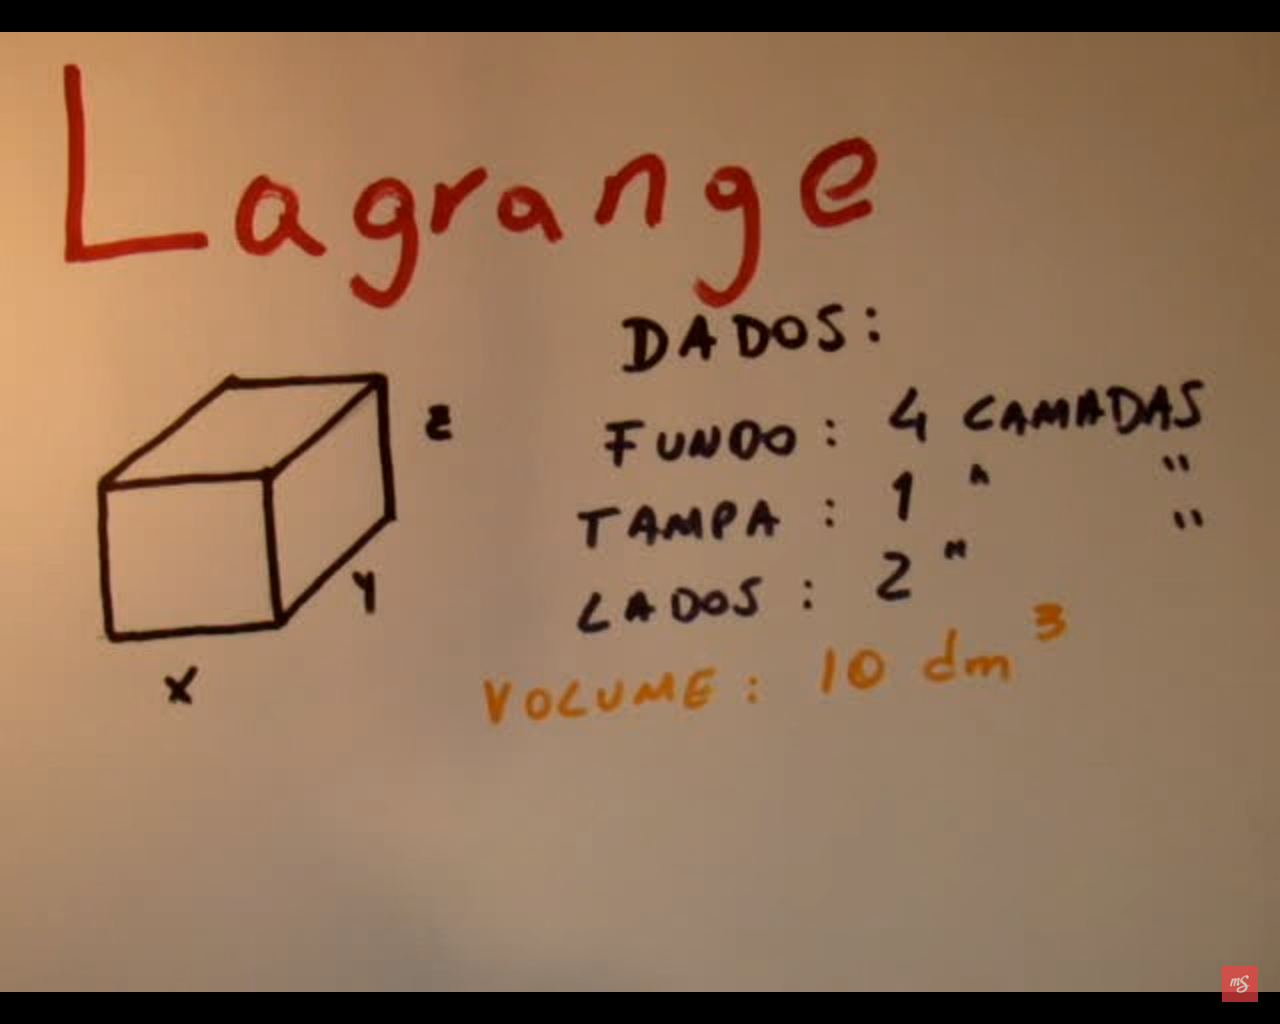 Lagrange
DADOS:
Z
FUNDO: 4 CAMADAS
TAMPA: 1 " "
LADOS: 2 " "
Y
X
VOLUME: 10 dm³
mS